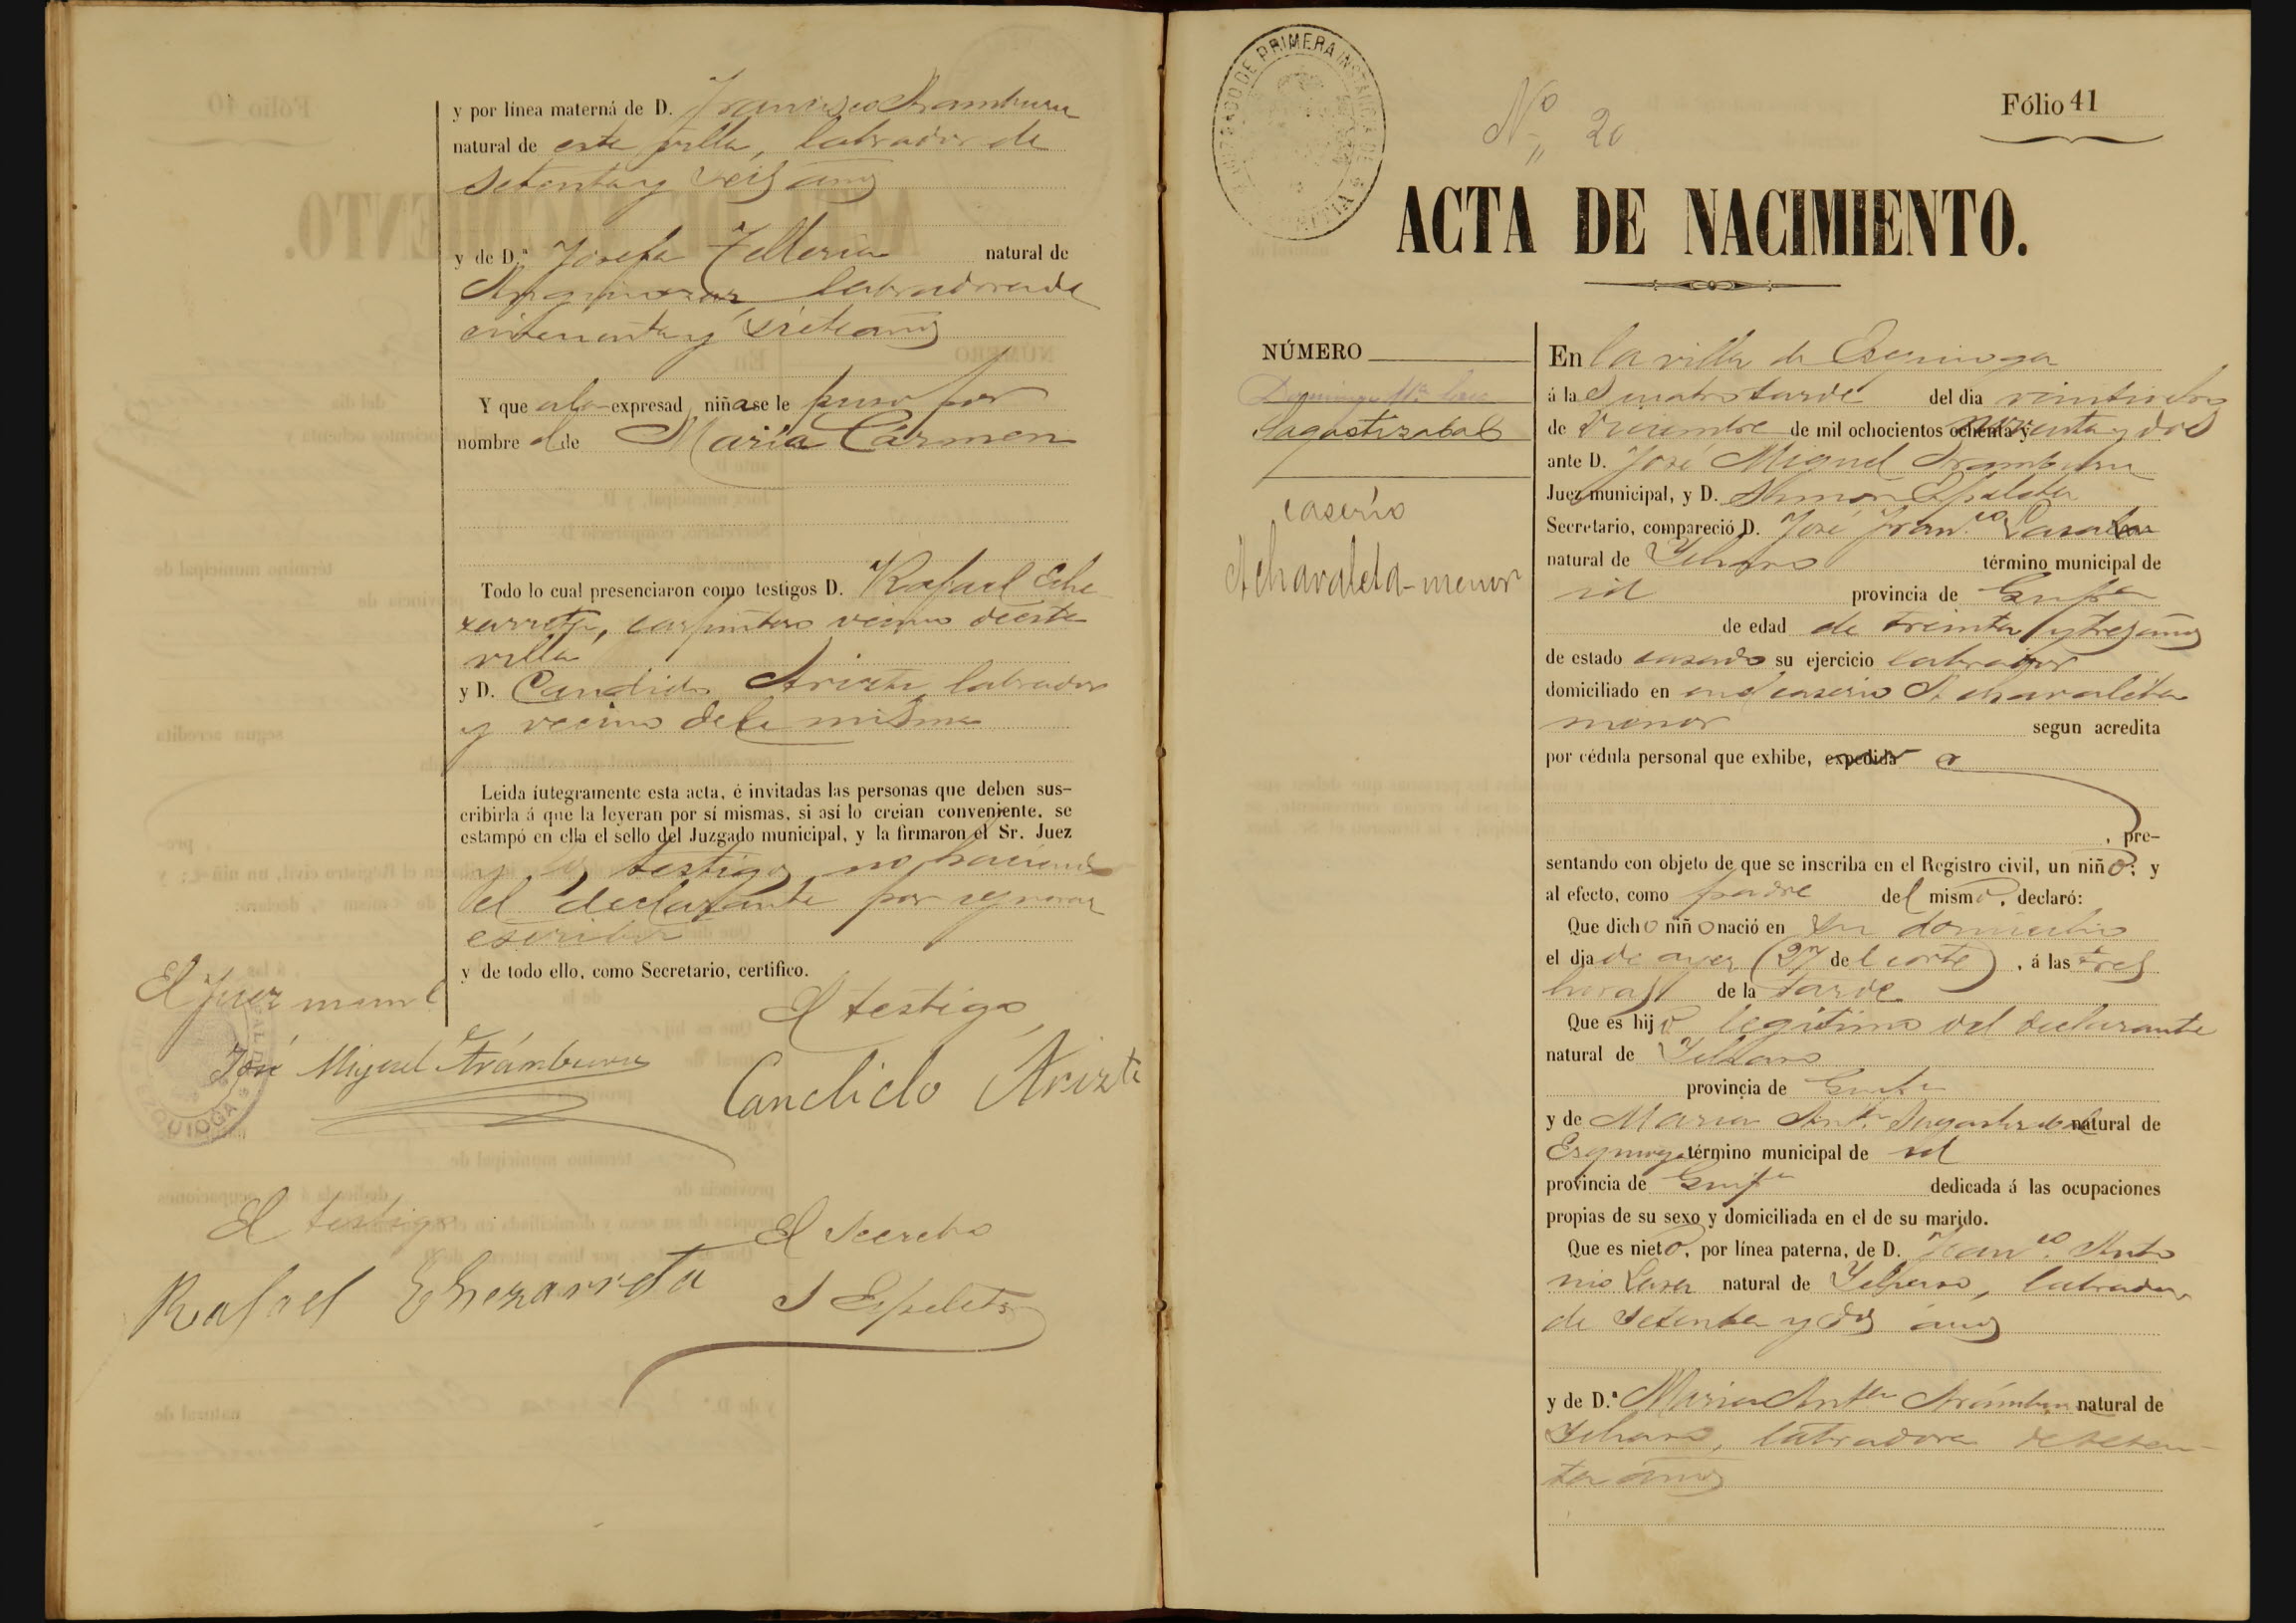 y por línea materná de D. Francisco Aramburu
natural de esta villa, labrador de
setenta y seis años
y de D.ª Josefa Telleria natural de
labradora de
cincuenta y siete años
Y que a la expresad niña se le puso por
nombre de María Carmen
Todo lo cual presenciaron como testigos D. Rafael Eche-
zarreta, carpintero vecino de esta
villa
y D. Candido Arizti, labrador
y vecino de la misma
Leida íntegramente esta acta, é invitadas las personas que deben sus-
cribirla á que la leyeran por sí mismas, si así lo creian conveniente, se
estampó en ella el sello del Juzgado municipal, y la firmaron el Sr. Juez
y los testigos, no haciendo
el declarante por ignorar
escribir
y de todo ello, como Secretario, certifico.
El Juez munl
El testigo
José Miguel Aramburu
Candido Arizti
EZQUIOGA
El testigo
El Secreto
Rafael Echezarreta
S Espeleta
JUZGADO DE PRIMERA INSTANCIA DE
Nº 20
Fólio 41
ACTA DE NACIMIENTO.
NÚMERO
Domingo Mª Lasa
Sagastizabal
caserío
Acharaleta-menor
En la villa de Esquioga
á las cuatro tarde del dia veintiocho
de Diciembre de mil ochocientos ochenta y noventa y dos
ante D. José Miguel Aramburu
Juez municipal, y D. Simon Espeleta
Secretario, compareció D. José Fran.co Lasa
natural de Ichaso término municipal de
id provincia de Guipa
de edad de treinta y tres años
de estado casado su ejercicio labrador
domiciliado en en el caserio Acharaleta
menor segun acredita
por cédula personal que exhibe, expedida
, pre-
sentando con objeto de que se inscriba en el Registro civil, un niño; y
al efecto, como padre del mismo, declaró:
Que dicho niño nació en su domicilio
el dia de ayer (27 del corte), á las tres
horas de la tarde
Que es hijo legítimo del declarante
natural de Ichaso
provincia de Guipa
y de Maria Ant.a Sagastizabal natural de
Esquioga término municipal de id
provincia de Guipa dedicada á las ocupaciones
propias de su sexo y domiciliada en el de su marido.
Que es nieto, por línea paterna, de D. Fran.co Anto
nio Lasa natural de Ichaso, labrador
de setenta y dos años
y de D.ª Maria Anta Aramburu natural de
Ichaso, labradora de seten-
ta años